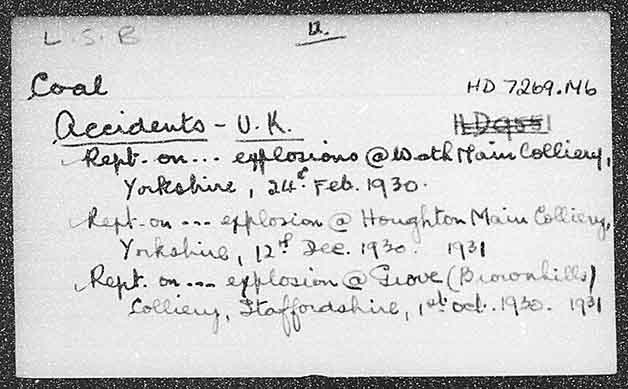 L.S.B 12.
Coal HD 7269.M6
Accidents - U.K. HD9551
Rept. on ... explosions @ Wath Main Colliery,
Yorkshire, 24th Feb. 1930.
Rept. on ... explosion @ Houghton Main Colliery,
Yorkshire, 12th Dec. 1930. 1931
Rept. on ... explosion @ Grove (Brownhills)
Colliery, Staffordshire, 1st Oct. 1930. 1931